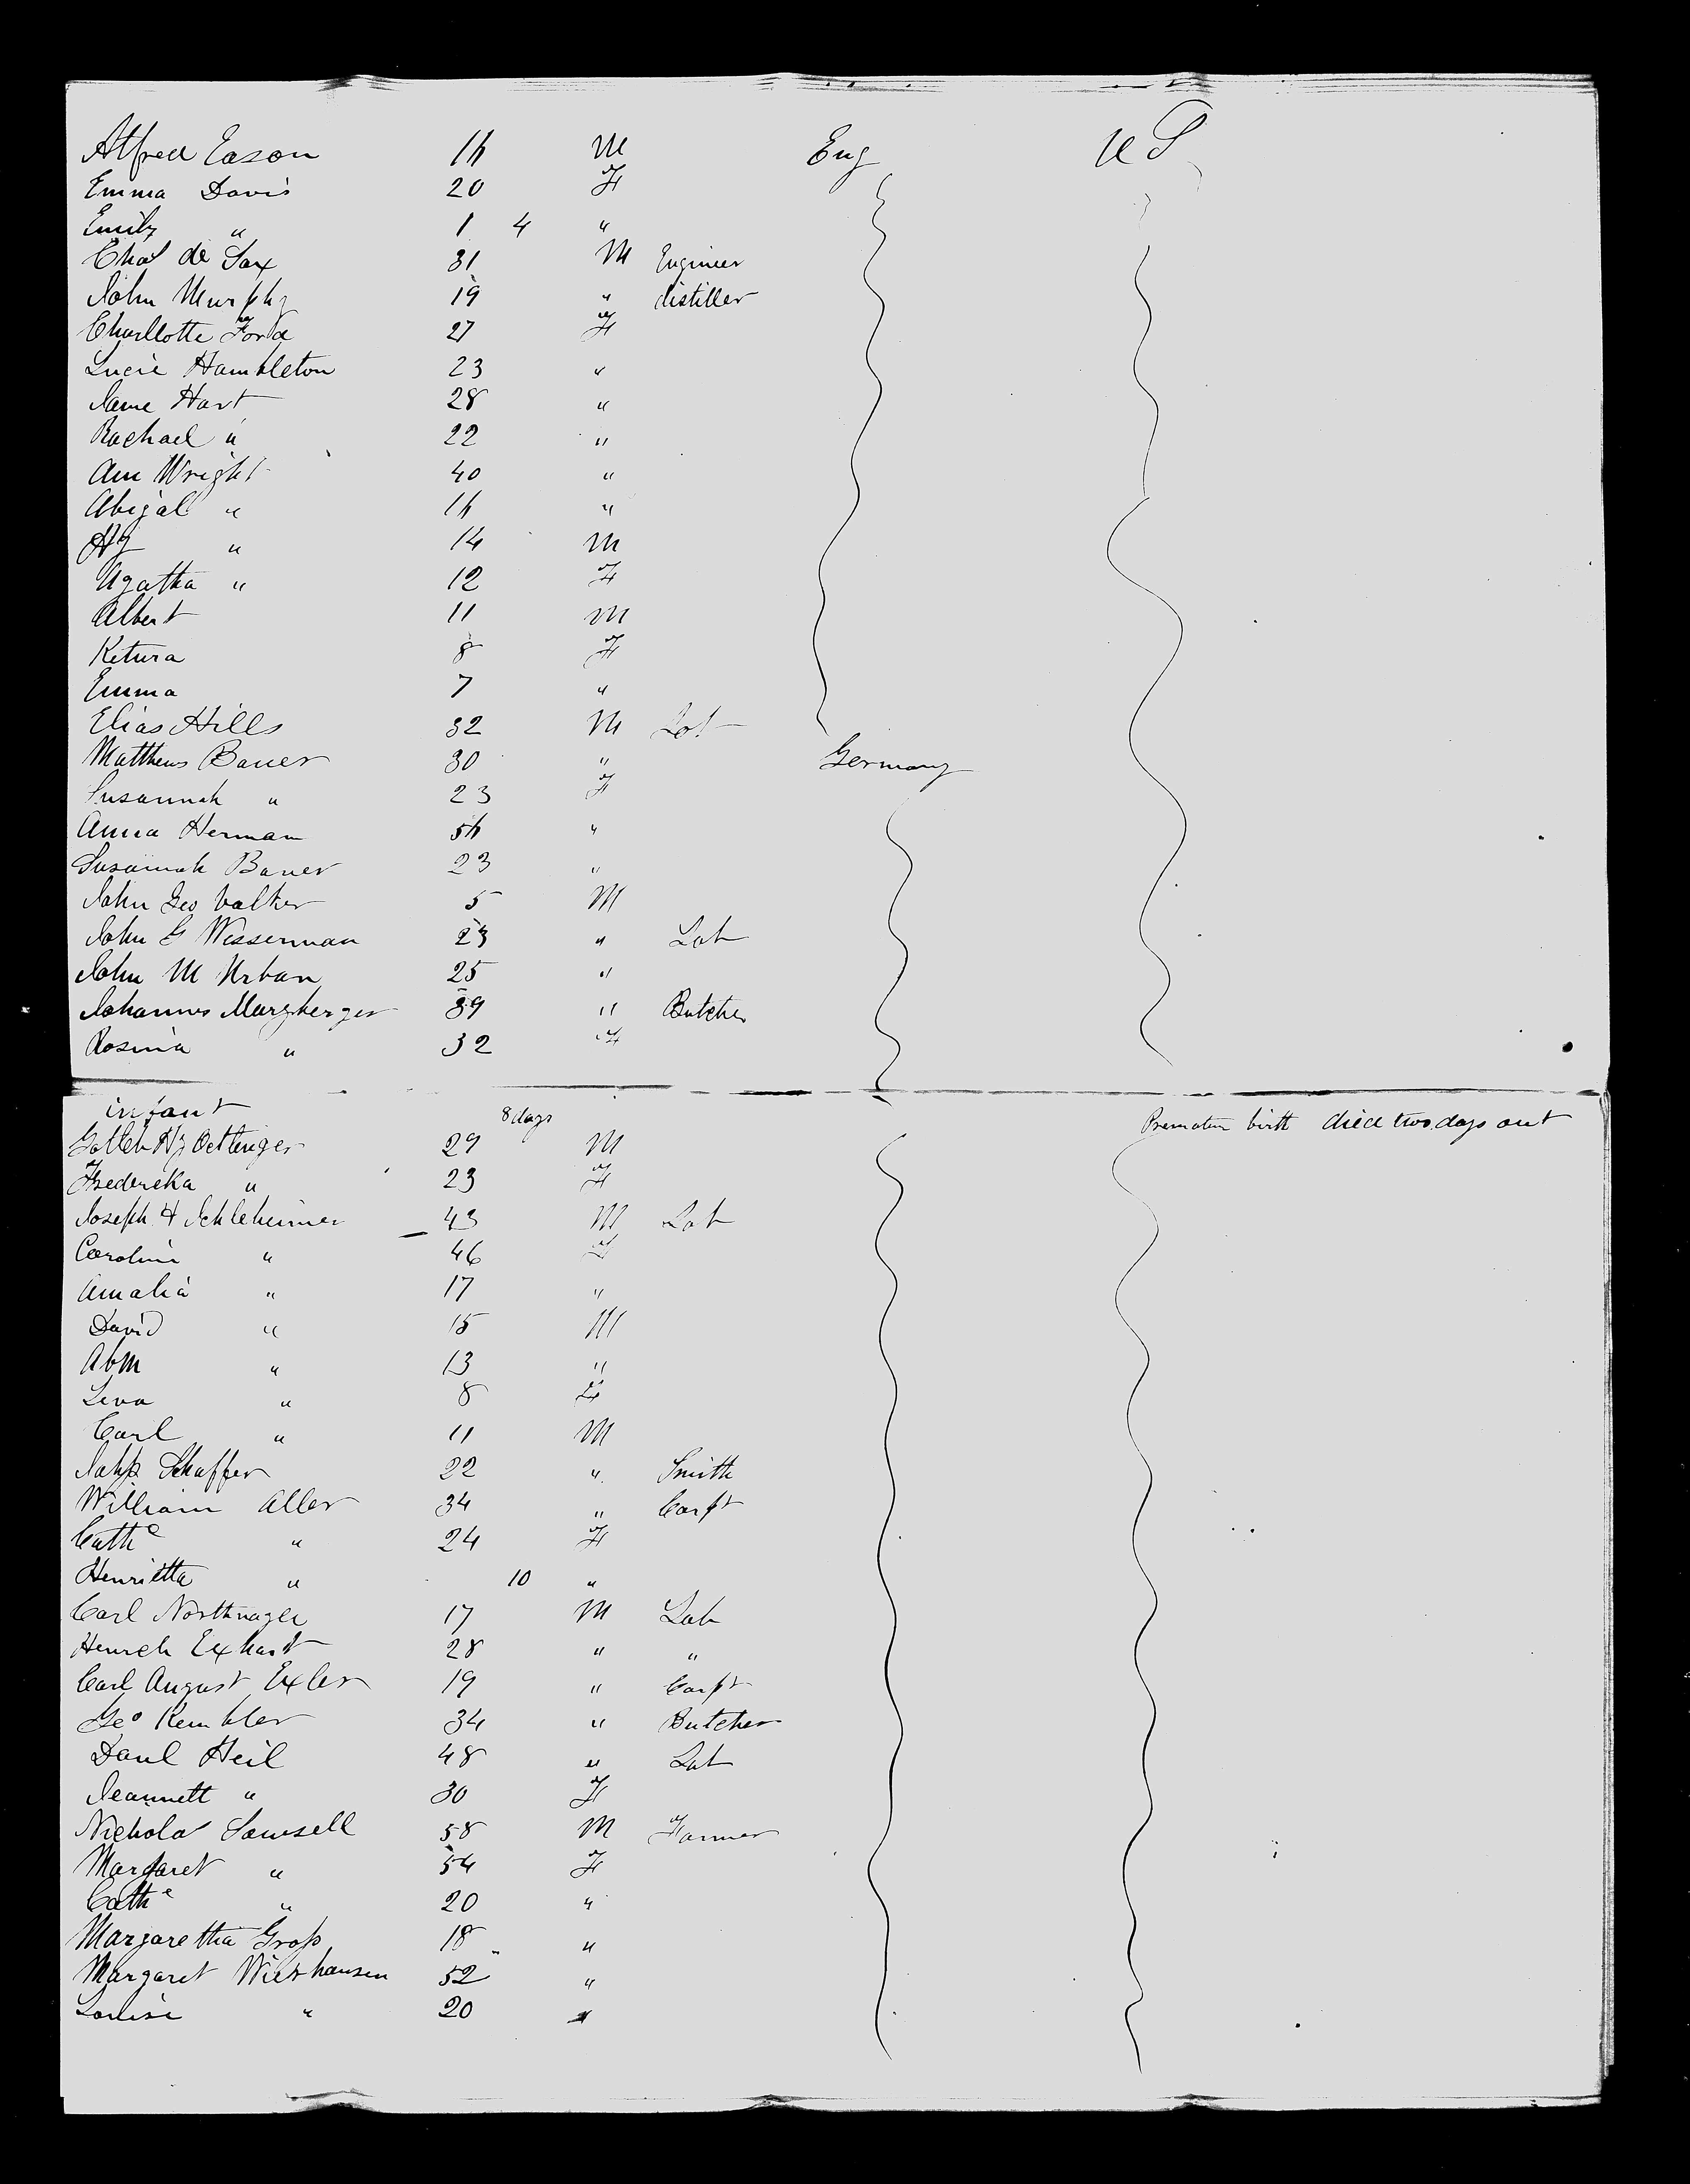 Alfred Eason 16 M Eng U S
Emma Davis 20 F
Emily " 1 4 "
Chas de Sax 31 M Engineer
John Murphy 19 " distiller
Charllotte Ford 27 F
Lucie Hambleton 23 "
Jane Hart 28 "
Rachael " 22 "
Ann Wright 40 "
Abigal " 16 "
Hy " 14 M
Agatha " 12 F
Albert 11 M
Ketura 8 F
Emma 7 "
Elias Hills 32 M Lab
Matthews Bauer 30 " Germany
Susannah " 23 F
Anna Herman 56 "
Susannah Bauer 23 "
John Geo Valker 5 M
John G Wisserman 23 " Lab
John M Urban 25 "
Johannes Murzberger 39 " Butcher
Rosina " 32 F
infant 8 days Premature birth died two days out
Gotleb Hy Oettinger 29 M
Frederika " 23 F
Joseph H Schleheimer 43 M Lab
Caroline " 46 F
Amalia " 17 "
David " 15 M
Abm " 13 "
Lena " 8 F
Carl " 11 M
Schaffer 22 " Smith
William Aller 34 " Carpt
Cathe " 24 F
Henrietta " 10 "
Carl Northnagle 17 M Lab
Henrich Exhart 28 " "
Carl August Exler 19 " Carpt
Geo Kembler 34 " Butcher
Danl Heil 48 " Lab
Jeannett " 30 F
Nicholas Sawsell 58 M Farmer
Margaret " 54 F
Cathe " 20 "
Margaretha Gross 18 "
Margaret Wirkhausen 52 "
Louise " 20 "